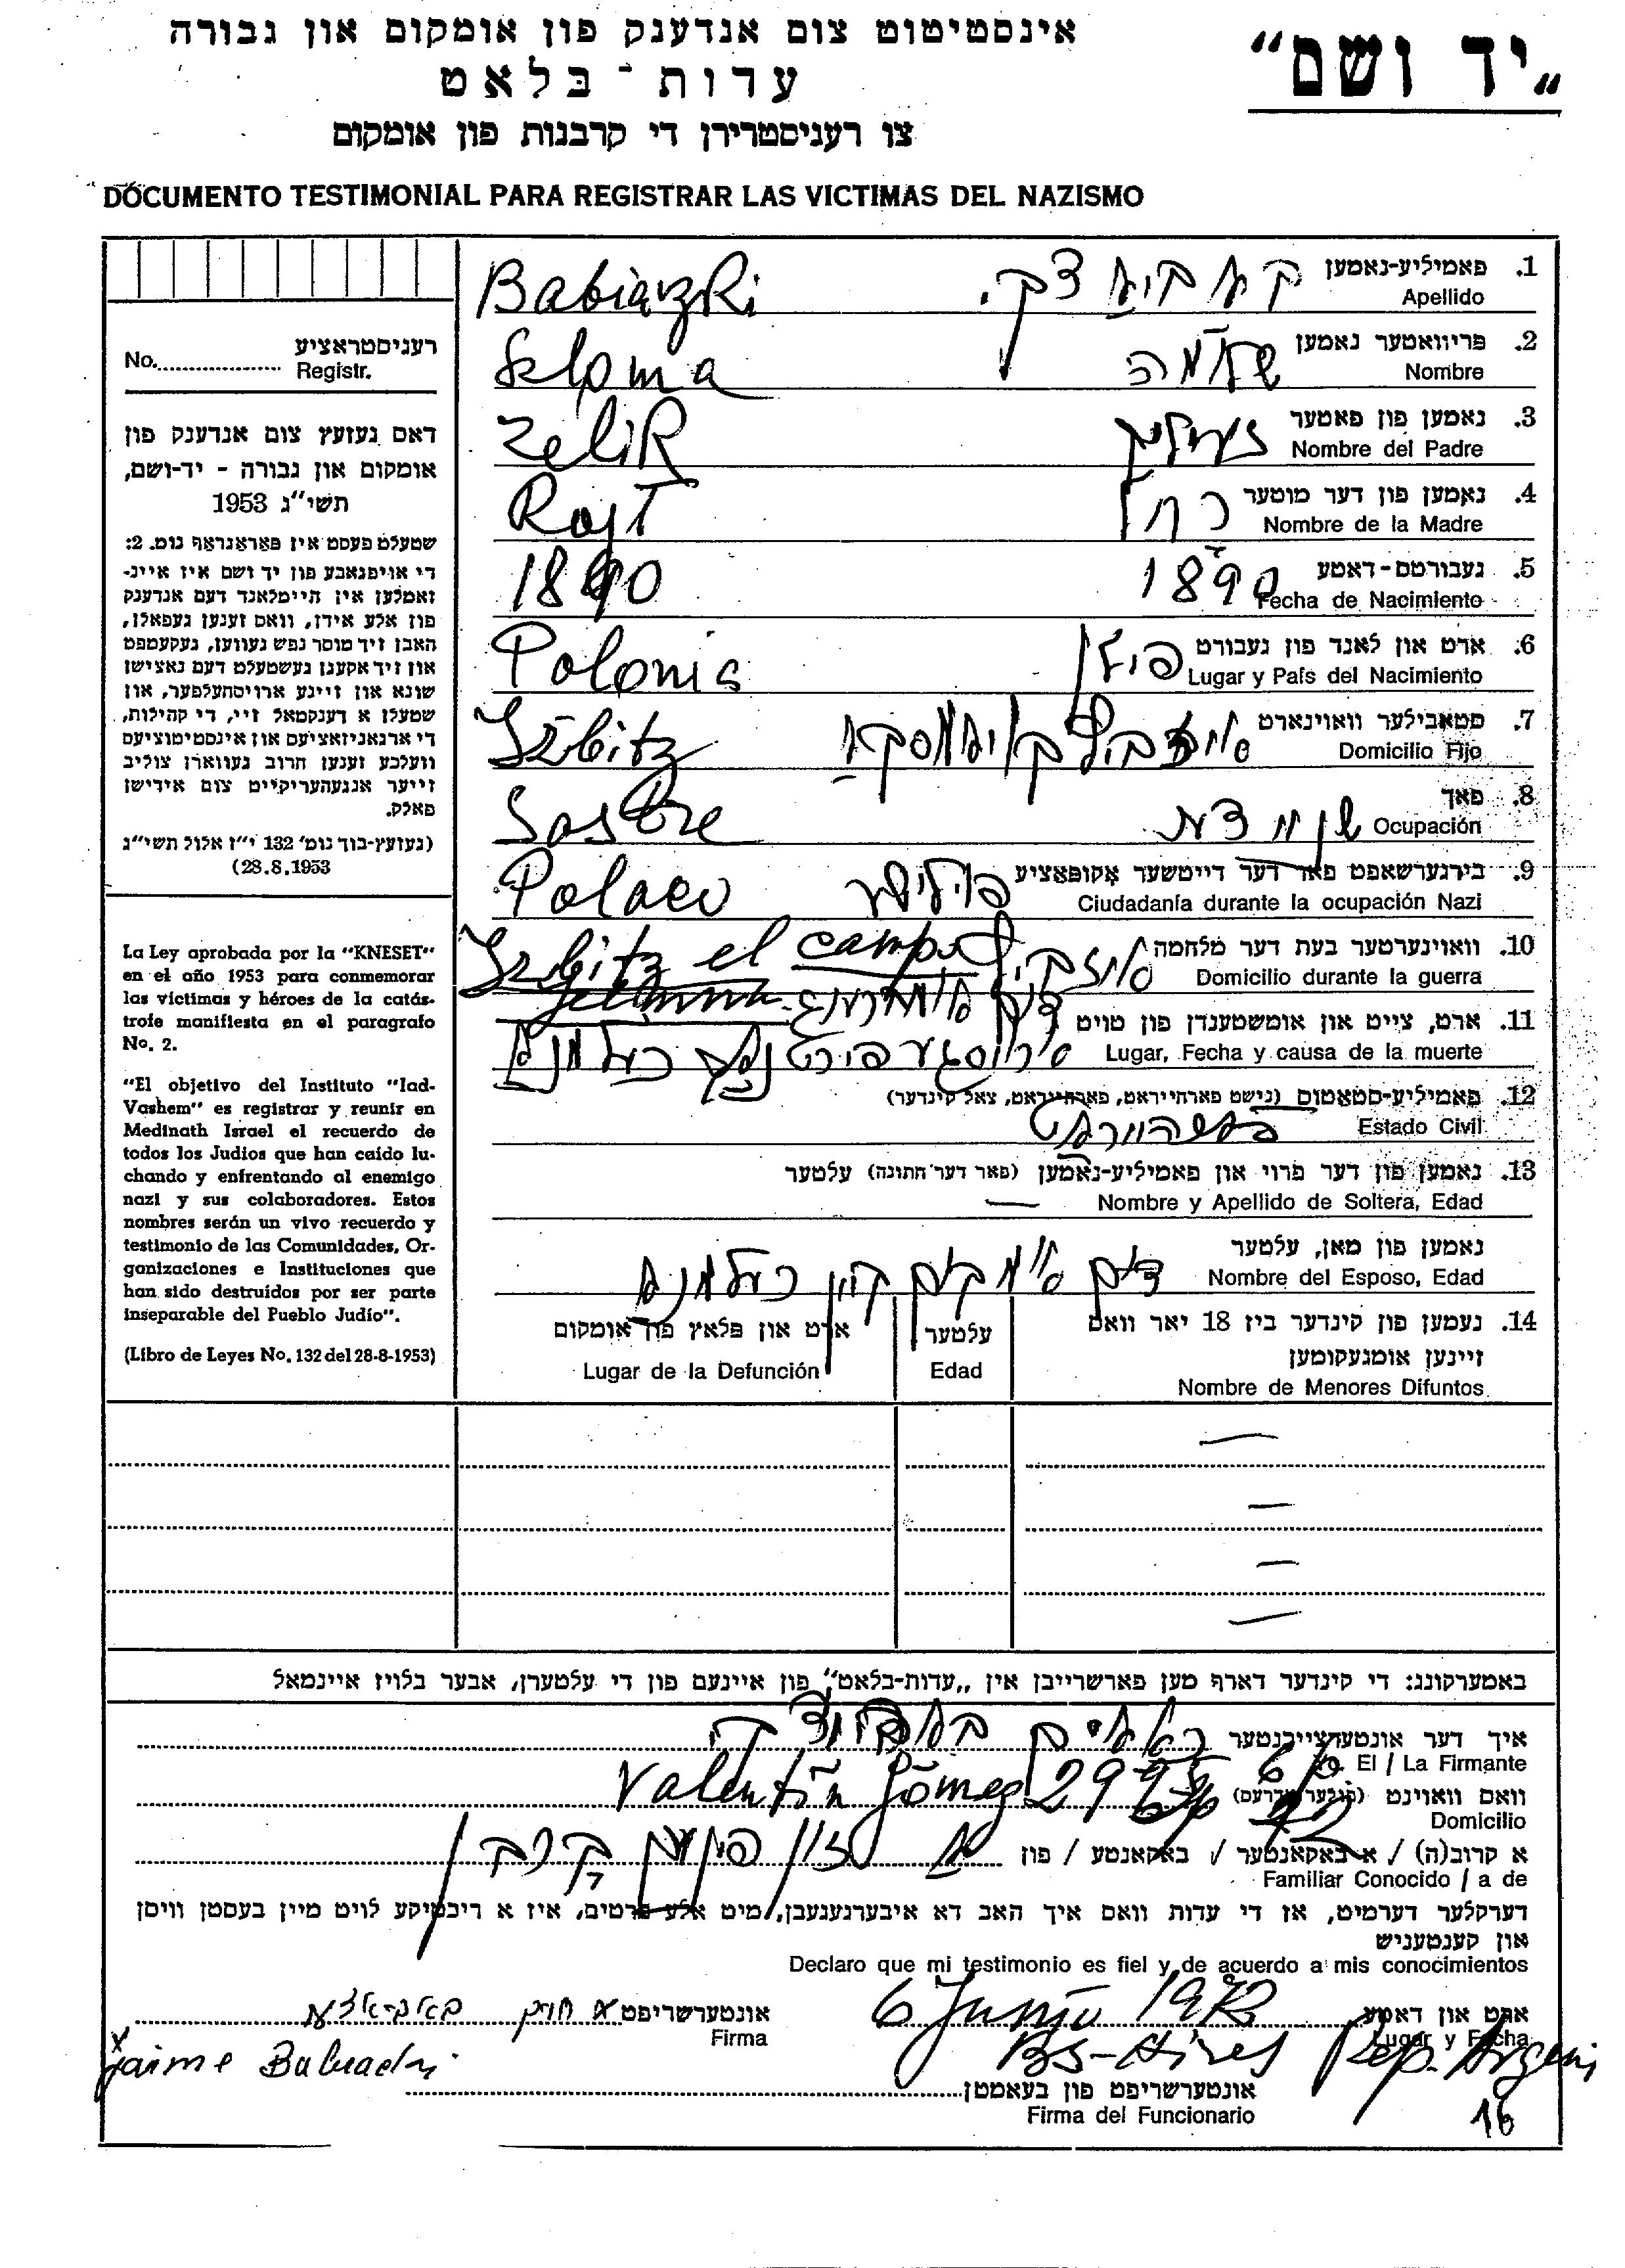 „יד ושם“
אינסטיטוט צום אנדענק פון אומקום און גבורה
עדות-בלאט
צו רעגיסטרירן די קרבנות פון אומקום
DOCUMENTO TESTIMONIAL PARA REGISTRAR LAS VICTIMAS DEL NAZISMO
רעגיסטראציע
No. Registr.
דאס געזעץ צום אנדענק פון
אומקום און גבורה - יד-ושם,
תשי"ג 1953
שטעלט פעסט אין פאראגראף נומ. 2:
די אויפגאבע פון יד ושם איז איינ-
זאמלען אין היימלאנד דעם אנדענק
פון אלע אידן, וואס זענען געפאלן,
האבן זיך מוסר נפש געווען, געקעמפט
און זיך אקעגן געשטעלט דעם נאצישן
שונא און זיינע ארויסהעלפער, און
שטעלן א דענקמאל זיי, די קהילות,
די ארגאניזאציעס און אינסטיטוציעס
וועלכע זענען חרוב געווארן צוליב
זייער אנגעהעריקייט צום אידישן
פאלק.
(געזעץ-בוך נומ' 132 י"ז אלול תשי"ג
(28.8.1953
La Ley aprobada por la "KNESET"
en el año 1953 para conmemorar
las víctimas y héroes de la catás-
trofe manifiesta en el paragrafo
No. 2.
"El objetivo del Instituto "Iad-
Vashem" es registrar y reunir en
Medinath Israel el recuerdo de
todos los Judios que han caído lu-
chando y enfrentando al enemigo
nazi y sus colaboradores. Estos
nombres serán un vivo recuerdo y
testimonio de las Comunidades, Or-
ganizaciones e Instituciones que
han sido destruidos por ser parte
inseparable del Pueblo Judío".
(Libro de Leyes No. 132 del 28-8-1953)
1. פאמיליע-נאמען
Apellido Babiazki
2. פריוואטער נאמען שלמה
Nombre Szloma
3. נאמען פון פאטער זעליק
Nombre del Padre Zelik
4. נאמען פון דער מוטער רחל
Nombre de la Madre Rojl
5. געבורטס-דאטע 1890
Fecha de Nacimiento 1890
6. ארט און לאנד פון געבורט פוילן
Lugar y País del Nacimiento Polonia
7. סטאבילער וואוינארט
Domicilio Fijo Izbitz
8. פאך
Ocupación Sastre
9. בירגערשאפט פאר דער דייטשער אקופאציע פויליש
Ciudadanía durante la ocupación Nazi Polaco
10. וואוינערטער בעת דער מלחמה
Domicilio durante la guerra Izbitz el campo
11. ארט, צייט און אומשטענדן פון טויט
Lugar, Fecha y causa de la muerte
12. פאמיליע-סטאטוס (נישט פארהייראט, פארהייראט, צאל קינדער)
Estado Civil
13. נאמען פון דער פרוי און פאמיליע-נאמען (פאר דער חתונה) עלטער
Nombre y Apellido de Soltera, Edad —
נאמען פון מאן, עלטער
Nombre del Esposo, Edad
14. נעמען פון קינדער ביז 18 יאר וואס
זיינען אומגעקומען
Nombre de Menores Difuntos
עלטער
Edad
ארט און פלאץ פון אומקום
Lugar de la Defunción
—
—
—
—
באמערקונג: די קינדער דארף מען פארשרייבן אין „עדות-בלאט“ פון איינעם פון די עלטערן, אבער בלויז איינמאל
איך דער אונטערצייכנטער
Yo. El / La Firmante
וואס וואוינט (פולער אדרעס) Valentín Gómez
Domicilio
א קרוב(ה) / א באקאנטער / באקאנטע / פון
Familiar Conocido / a de
דערקלער דערמיט, אז די עדות וואס איך האב דא איבערגעגעבן, מיט אלע פרטים, איז א ריכטיקע לויט מיין בעסטן וויסן
און קענטעניש
Declaro que mi testimonio es fiel y de acuerdo a mis conocimientos
ארט און דאטע 6 Junio 1972
Lugar y Fecha Bs-Aires Rep. Argent
אונטערשריפט
Firma
Jaime
אונטערשריפט פון בעאמטן
Firma del Funcionario
16